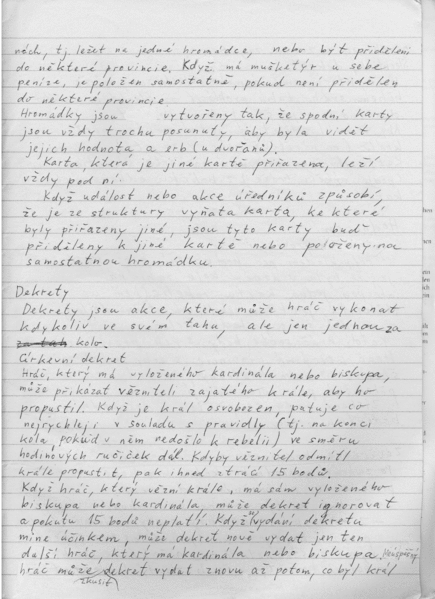 nách, tj ležet na jedné hromádce, nebo být přiděleni
do některé provincie. Když má mušketýr u sebe
peníze, je položen samostatně, pokud není přidělen
do některé provincie.
Hromádky jsou vytvořeny tak, že spodní karty
jsou vždy trochu posunuty, aby byla vidět
jejich hodnota a erb (u dvořanů).
Karta, která je jiné kartě přiřazena, leží
vždy pod ní.
Když událost nebo akce úředníků způsobí,
že je ze struktury vyňata karta, ke které
byly přiřazeny jiné, jsou tyto karty buď
přiděleny k jiné kartě nebo položeny na
samostatnou hromádku.
Dekrety
Dekrety jsou akce, které může hráč vykonat
kdykoliv ve svém tahu, ale jen jednou za
za tah kolo.
Církevní dekret
Hráč, který má vyloženého kardinála nebo biskupa,
může přikázat vězniteli zajatého krále, aby ho
propustil. Když je král osvobozen, putuje co
nejrychleji v souladu s pravidly (tj. na konci
kola, pokud v něm nedošlo k rebelii) ve směru
hodinových ručiček dál. Kdyby věznitel odmítl
krále propustit, pak ihned ztrácí 15 bodů.
Když hráč, který vězní krále, má sám vyloženého
biskupa nebo kardinála, může dekret ignorovat
a pokutu 15 bodů neplatí. Když vydání dekretu
mine účinkem, může dekret nově vydat jen ten
další hráč, který má kardinála nebo biskupa. Neúspěšný
hráč může dekret vydat znovu až potom, co byl král
zkusit